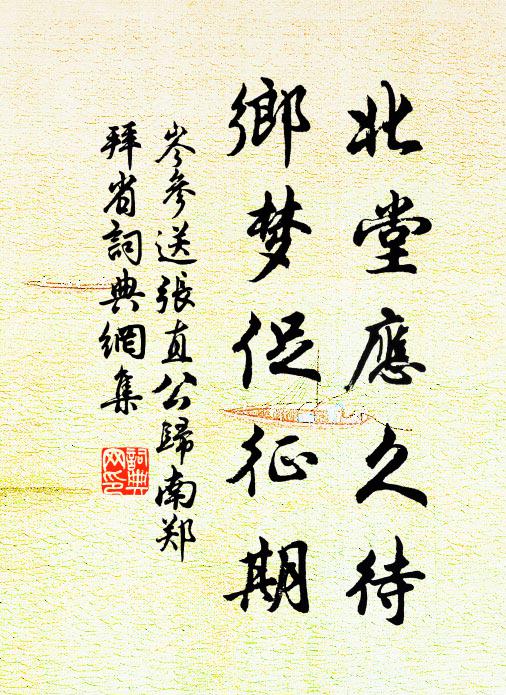 北堂應久待
鄉梦促征期
岑參送張直公歸南郑
拜省詞典網集
詞典网印